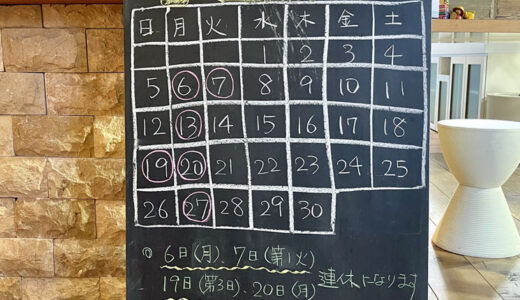 日 月 火 水 木 金 土
1 2 3 4
5 6 7 8 9 10 11
12 13 14 15 16 17 18
19 20 21 22 23 24 25
26 27 28 29 30
◎ 6日(月)、7日(第1火)
19日(第3日)、20日(月) 連休になります